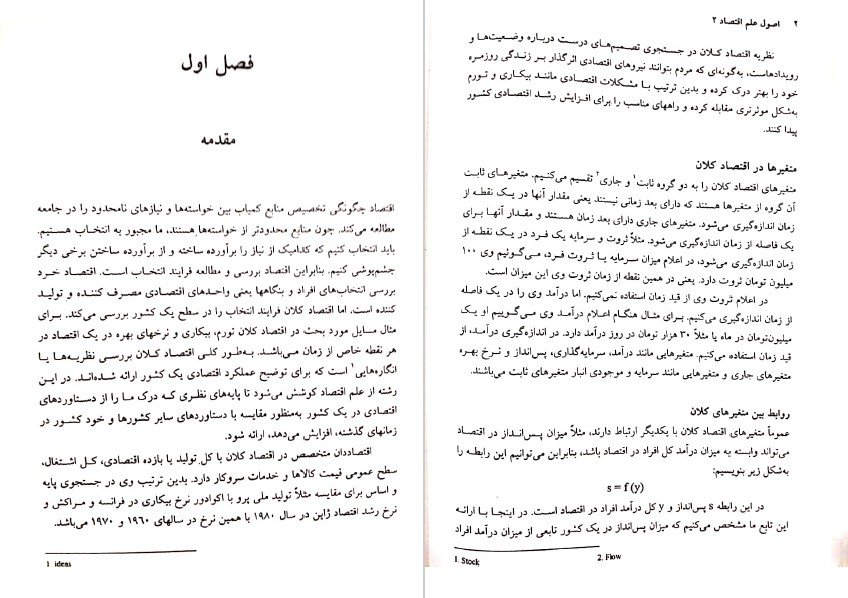 فصل اول
مقدمه
اقتصاد چگونگی تخصیص منابع کمیاب بین خواسته‌ها و نیازهای نامحدود را در جامعه
مطالعه می‌کند. چون منابع محدودتر از خواسته‌ها هستند، ما مجبور به انتخاب هستیم.
باید انتخاب کنیم که کدامیک از نیاز را برآورده ساخته و از برآورده ساختن برخی دیگر
چشم‌پوشی کنیم. بنابراین اقتصاد بررسی و مطالعه فرایند انتخاب است. اقتصاد خرد
بررسی انتخاب‌های افراد و بنگاهها یعنی واحدهای اقتصادی مصرف کننده و تولید
کننده است. اما اقتصاد کلان فرایند انتخاب را در سطح یک کشور بررسی می‌کند. برای
مثال مسایل مورد بحث در اقتصاد کلان تورم، بیکاری و نرخهای بهره در یک اقتصاد در
هر نقطه خاص از زمان می‌باشد. به‌طور کلی اقتصاد کلان بررسی نظریه‌ها یا
انگاره‌هایی۱ است که برای توضیح عملکرد اقتصادی یک کشور ارائه شده‌اند. در این
رشته از علم اقتصاد کوشش می‌شود تا پایه‌های نظری که درک ما را از دستاوردهای
اقتصادی در یک کشور به‌منظور مقایسه با دستاوردهای سایر کشورها و خود کشور در
زمانهای گذشته، افزایش می‌دهد، ارائه شود.
اقتصاددان متخصص در اقتصاد کلان با کل تولید یا بازده اقتصادی، کل اشتغال،
سطح عمومی قیمت کالاها و خدمات سروکار دارد. بدین ترتیب وی در جستجوی پایه
و اساس برای مقایسه مثلاً تولید ملی پرو با اکوادور نرخ بیکاری در فرانسه و مراکش و
نرخ رشد اقتصاد ژاپن در سال ۱۹۸۰ با همین نرخ در سالهای ۱۹۶۰ و ۱۹۷۰ می‌باشد.
1. ideas
۲ اصول علم اقتصاد ۲
نظریه اقتصاد کلان در جستجوی تصمیم‌های درست درباره وضعیت‌ها و
رویدادهاست، به‌گونه‌ای که مردم بتوانند نیروهای اقتصادی اثرگذار بر زندگی روزمره
خود را بهتر درک کرده و بدین ترتیب با مشکلات اقتصادی مانند بیکاری و تورم
به‌شکل موثرتری مقابله کرده و راههای مناسب را برای افزایش رشد اقتصادی کشور
پیدا کنند.
متغیرها در اقتصاد کلان
متغیرهای اقتصاد کلان را به دو گروه ثابت۱ و جاری۲ تقسیم می‌کنیم. متغیرهای ثابت
آن گروه از متغیرها هستند که دارای بعد زمانی نیستند یعنی مقدار آنها در یک نقطه از
زمان اندازه‌گیری می‌شود. متغیرهای جاری دارای بعد زمان هستند و مقدار آنها برای
یک فاصله از زمان اندازه‌گیری می‌شود. مثلاً ثروت و سرمایه یک فرد در یک نقطه از
زمان اندازه‌گیری می‌شود، در اعلام میزان سرمایه یا ثروت فرد، می‌گوئیم وی ۱۰۰
میلیون تومان ثروت دارد. یعنی در همین نقطه از زمان ثروت وی این میزان است.
در اعلام ثروت وی از قید زمان استفاده نمی‌کنیم. اما درآمد وی را در یک فاصله
از زمان اندازه‌گیری می‌کنیم. برای مثال هنگام اعلام درآمد وی می‌گوییم او یک
میلیون‌تومان در ماه یا مثلاً ۳۰ هزار تومان در روز درآمد دارد. در اندازه‌گیری درآمد، از
قید زمان استفاده می‌کنیم. متغیرهایی مانند درآمد، سرمایه‌گذاری، پس‌انداز و نرخ بهره
متغیرهای جاری و متغیرهایی مانند سرمایه و موجودی انبار متغیرهای ثابت می‌باشند.
روابط بین متغیرهای کلان
عموماً متغیرهای اقتصاد کلان با یکدیگر ارتباط دارند، مثلاً میزان پس‌انداز در اقتصاد
می‌تواند وابسته به میزان درآمد کل افراد در اقتصاد باشد، بنابراین می‌توانیم این رابطه را
به‌شکل زیر بنویسیم:
s = f (y)
در این رابطه s پس‌انداز و y کل درآمد افراد در اقتصاد است. در اینجا با ارائه
این تابع ما مشخص می‌کنیم که میزان پس‌انداز در یک کشور تابعی از میزان درآمد افراد
1. Stock 2. Flow